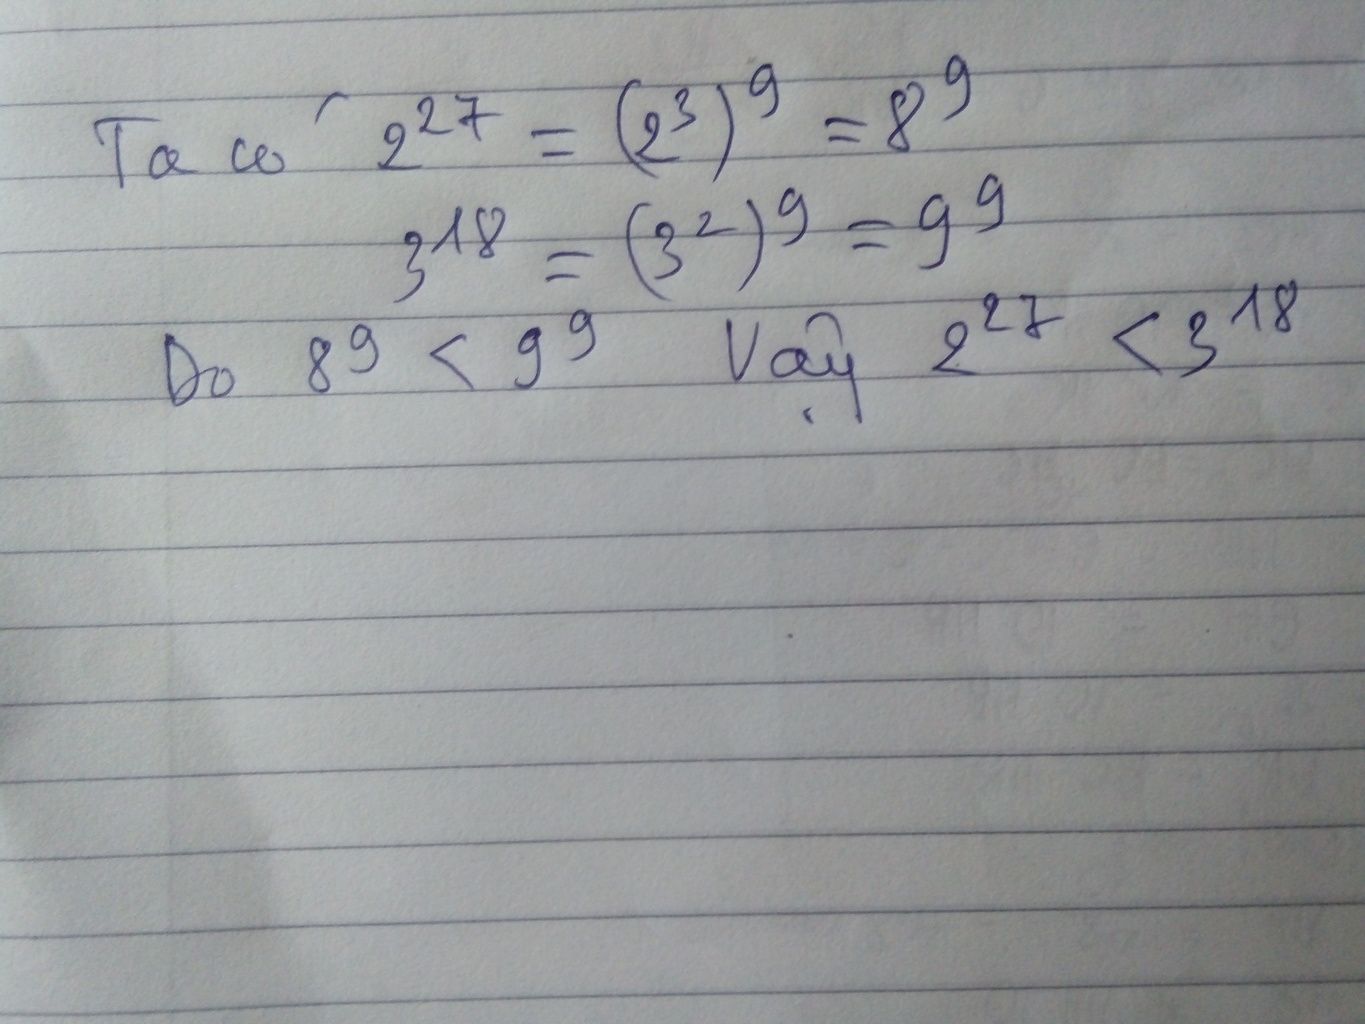 Ta có 2²⁷ = (2³)⁹ = 8⁹
3¹⁸ = (3²)⁹ = 9⁹
Do 8⁹ < 9⁹ Vậy 2²⁷ < 3¹⁸